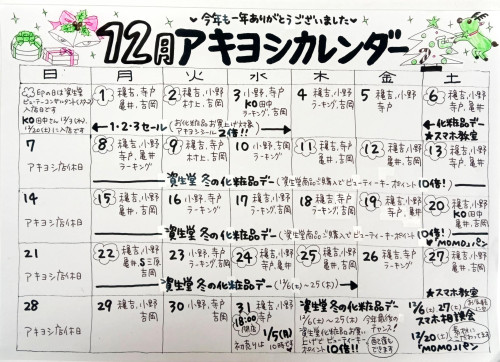 今年も一年ありがとうございました
12月アキヨシカレンダー
日 月 火 水 木 金 土
1 穐吉、寺戸
亀井、吉岡
2 穐吉、小野
村上、吉岡
3 小野、寺戸
KO田中
ラーキング、吉岡
4 穐吉、吉岡
ラーキング
5 穐吉、小野
寺戸
6 穐吉、小野
亀井、吉岡
1・2・3セール
(お化粧品お買上げで
アキヨシシール2倍!!)
化粧品デー
★スマホ教室
7
アキヨシ店休日
8 穐吉、小野
寺戸、亀井
ラーキング
9 穐吉、小野
村上、吉岡
10 小野、吉岡
ラーキング
11 穐吉、寺戸
亀井、吉岡
12 穐吉、小野
寺戸、亀井
13 穐吉、小野
寺戸、亀井
資生堂 冬の化粧品デー(資生堂商品ご購入でビューティーキーポイント10倍!)
14
アキヨシ店休日
15 穐吉、小野
亀井、吉岡
16 小野、寺戸
ラーキング
17 穐吉、小野
ラーキング、吉岡
18 穐吉、吉岡
ラーキング
19 穐吉、小野
寺戸、亀井
20 穐吉、小野
KO田中
亀井、吉岡
資生堂 冬の化粧品デー(資生堂商品ご購入でビューティーキーポイント10倍!)
MOMOパン
21
アキヨシ店休日
22 穐吉、小野
亀井、S三原
吉岡
23 小野、寺戸
ラーキング、吉岡
24 穐吉、小野
25 穐吉、小野
寺戸、亀井
26 穐吉、小野
27 穐吉、小野
資生堂 冬の化粧品デー(12/6(土)~25(木))
★スマホ教室
28
アキヨシ店休日
29 穐吉、小野
吉岡
30 穐吉、小野
寺戸
31 穐吉
寺戸
18:00
閉店
1/5(月)
初売りは10時です
資生堂 冬の化粧品デー
12/6(土)~25(木)
資生堂化粧品お買い
上げでビューティー
キーポイント10倍!!
今年最後の
チャンス!
12/6(土)27(土)
スマホ相談会
12/20(土)
MOMOパン